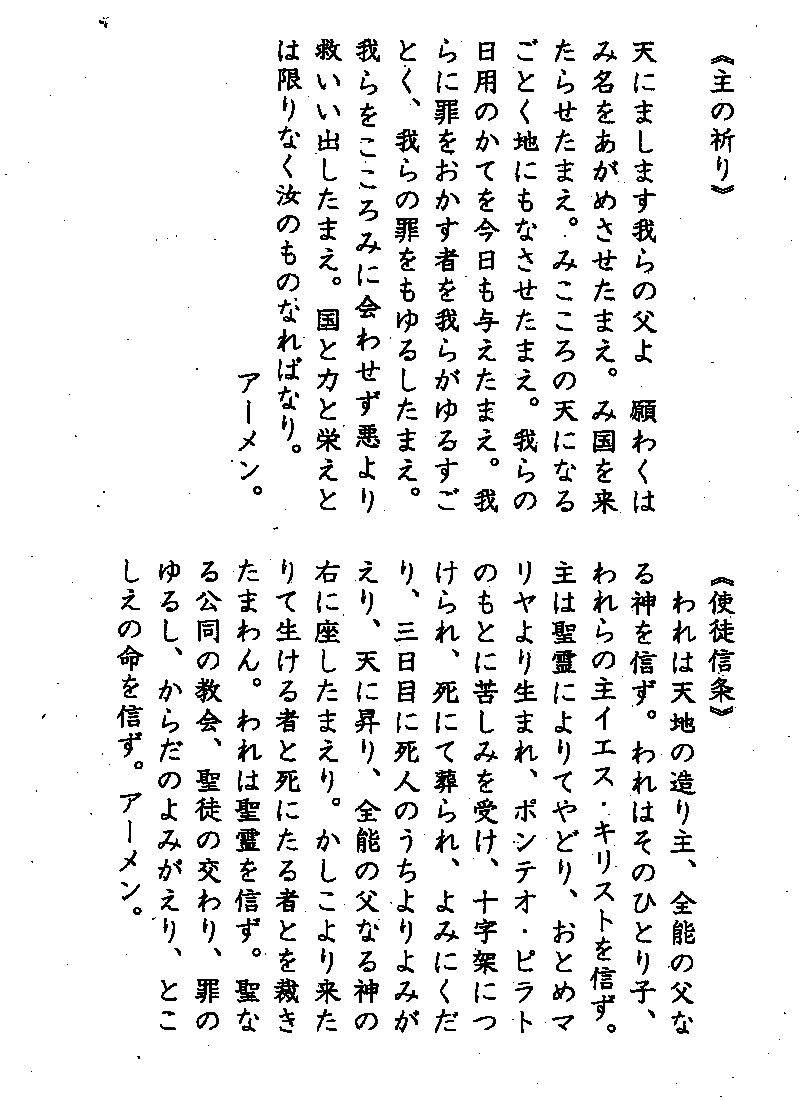 《主の祈り》
天にまします我らの父よ　願わくは
み名をあがめさせたまえ。み国を来
たらせたまえ。みこころの天になる
ごとく地にもなさせたまえ。我らの
日用のかてを今日も与えたまえ。我
らに罪をおかす者を我らがゆるすご
とく、我らの罪をもゆるしたまえ。
我らをこころみに会わせず悪より
救いい出したまえ。国と力と栄えと
は限りなく汝のものなればなり。
アーメン。
《使徒信条》
われは天地の造り主、全能の父な
る神を信ず。われはそのひとり子、
われらの主イエス・キリストを信ず。
主は聖霊によりてやどり、おとめマ
リヤより生まれ、ポンテオ・ピラト
のもとに苦しみを受け、十字架につ
けられ、死にて葬られ、よみにくだ
り、三日目に死人のうちよりよみが
えり、天に昇り、全能の父なる神の
右に座したまえり。かしこより来た
りて生ける者と死にたる者とを裁き
たまわん。われは聖霊を信ず。聖な
る公同の教会、聖徒の交わり、罪の
ゆるし、からだのよみがえり、とこ
しえの命を信ず。アーメン。